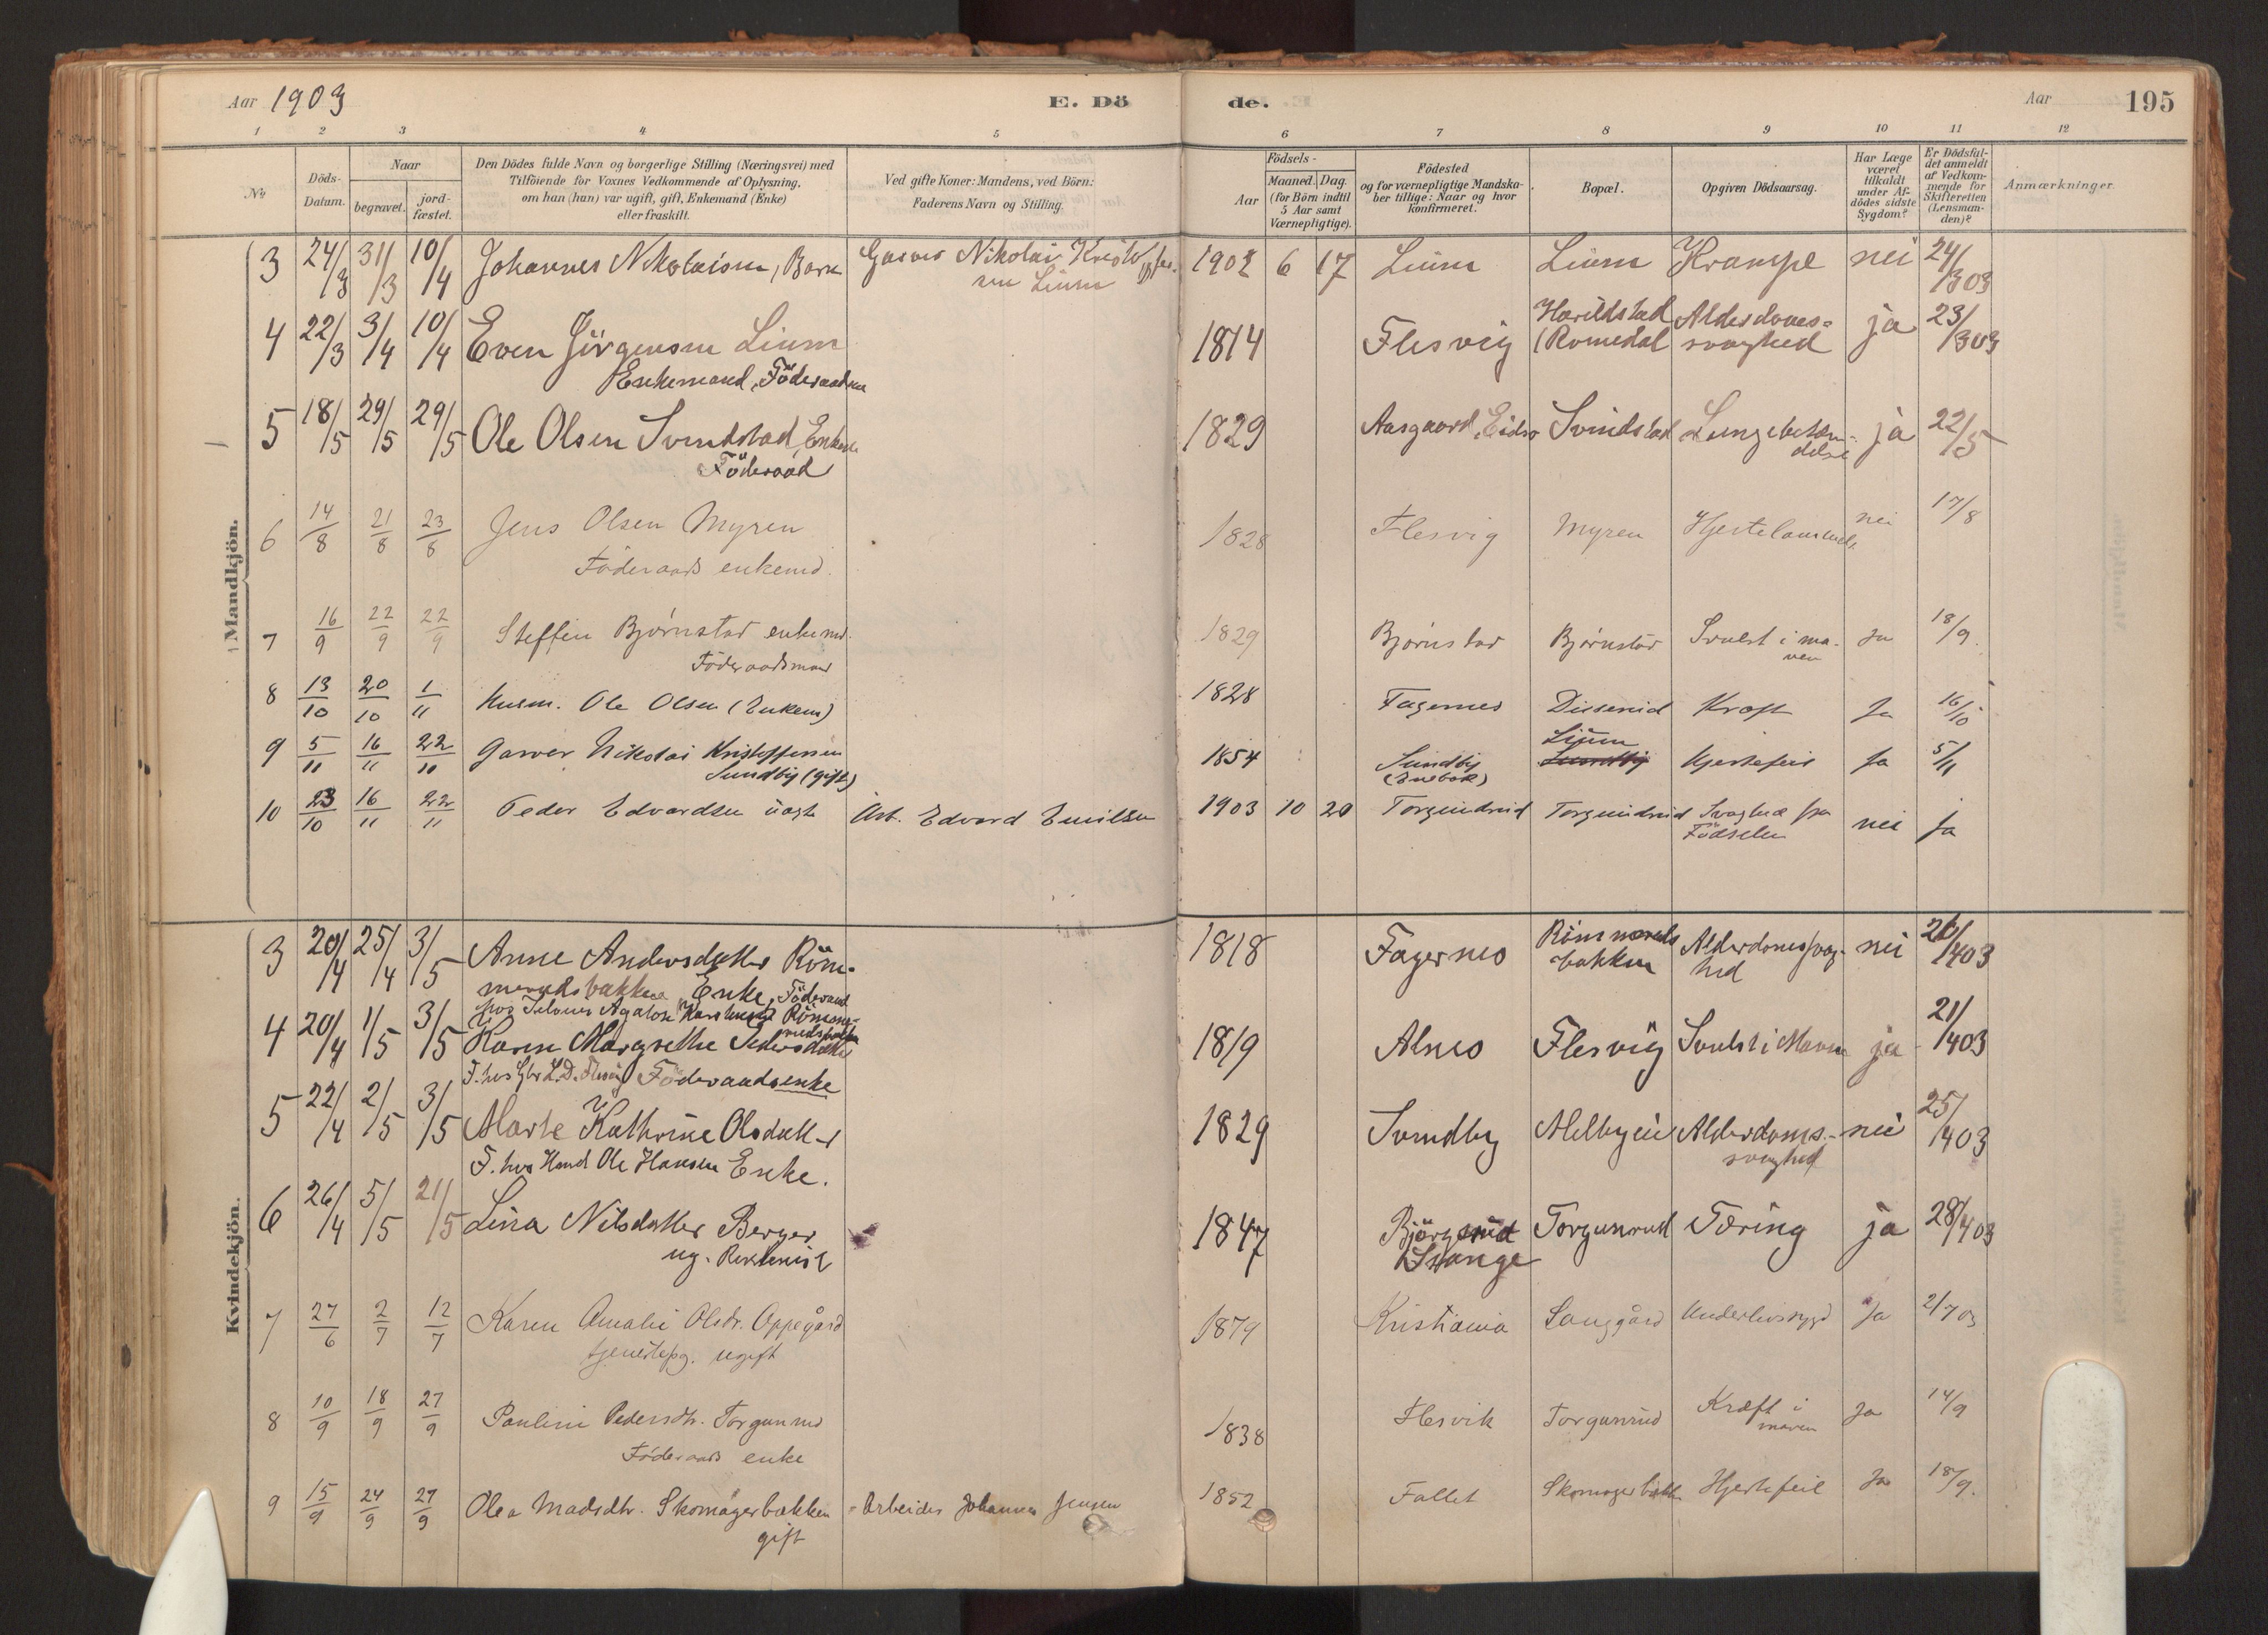 Aar 1903 E. Dö
de. Aar 195
1 2 3 4 5 6 7 8 9 10 11 12
No Döds-Datum. Naar begravet. jord-fæstet. Den Dödes fulde Navn og borgerlige Stilling (Næringsvei) med Tilföiende for Voxnes Vedkommende af Oplysning, om han (hun) var ugift, gift, Enkemand (Enke) eller fraskilt. Ved gifte Koner: Mandens, ved Börn: Faderens Navn og Stilling. Födsels- Aar Maaned. Dag. (for Börn indtil 5 Aar samt Værnepligtige). Födested og for værnepligtige Mandska-ber tillige: Naar og hvor konfirmeret. Bopæl. Opgiven Dödsaarsag. Har Læge været tilkaldt under Af-dödes sidste Sygdom? Er Dödsfal-det anmeldt af Vedkom-mende for Skifteretten (Lensman-den)? Anmærkninger.
Mandkjön.
3 24/3 31/3 10/4 Johannes Nikolaisen, Barn Garver Nikolai Kristoffer-sen Liúm 1902 6 17 Liúm Liúm Krampe nei 24/3 03
4 22/3 3/4 10/4 Even Jörgensen Liúm Enkemand, Föderaadsm 1814 Flesvig Harildstad (Romedal Alderdoms-svaghed ja 23/3 03
5 18/5 29/5 29/5 Ole Olsen Svindstad, Enkem Föderaad 1829 Aasgaard, Eidsv Svindstad Lungebetæn-delse ja 22/5
6 14/8 21/8 23/8 Jens Olsen Myren Föderaads enkemd. 1828 Flesvig Myren Hjertelammelse nei 17/8
7 16/9 22/9 22/9 Steffen Bjørnstad enkemd. Föderaadsmand 1829 Bjørnstad Bjørnstad Svulst i ma-ven Ja 18/9.
8 13/10 20/10 1/11 Husm. Ole Olsen (Enkem) 1828 Fagernes Diserud Kræft Ja 16/10
9 5/11 16/11 22/10 Garver Nikolai Kristoffersen Sundby (gift) 1854 Sundby (Enebak) Liúm Sundby Hjertefeil Ja 5/11
10 23/10 16/11 22/11 Peder Edvardsen úægte Arb. Edvard Emilsen 1903 10 20 Torgunrud Torgunrud Svaghed fra Födselen nei ja
Kvindekjön.
3 20/4 25/4 3/5 Anne Andersdatter Röm-merudsbakken Enke, Föderaad 1818 Fagernes Römmeruds bakken Alderdomssvag-hed nei 26/4 03
4 20/4 1/5 3/5 Karen Margrethe Pedersdatter Föderaadsenke 1819 Alnes Flesvig Svulst i Maven ja 21/4 03
5 22/4 2/5 3/5 Marte Kathrine Olsdatter F. hos Ole Hansen Enke. 1829 Svindby Melbyeie Alderdoms-svaghed nei 25/4 03
6 26/4 5/5 21/5 Lina Nilsdatter Berger ug. 1847 Björgerúd Stange Torgunrud Tæring ja 28/4 03
7 27/6 2/7 12/7 Karen Amalie Olsdr. Oppegård tjenestepg. ugift 1879 Kristiania Sanggård Underlivssygd Ja 2/7 03
8 10/9 18/9 27/9 Pauline Pedersdtr. Torgunrud Föderaads enke 1838 Flesvik Torgunrud Kræft i maven Ja 14/9
9 15/9 24/9 27/9 Olea Madsdtr. Skomagerbakken gift Arbeider Johannes Jensen 1852 Fallet Skomagerbakk Hjertefeil Ja 18/9.